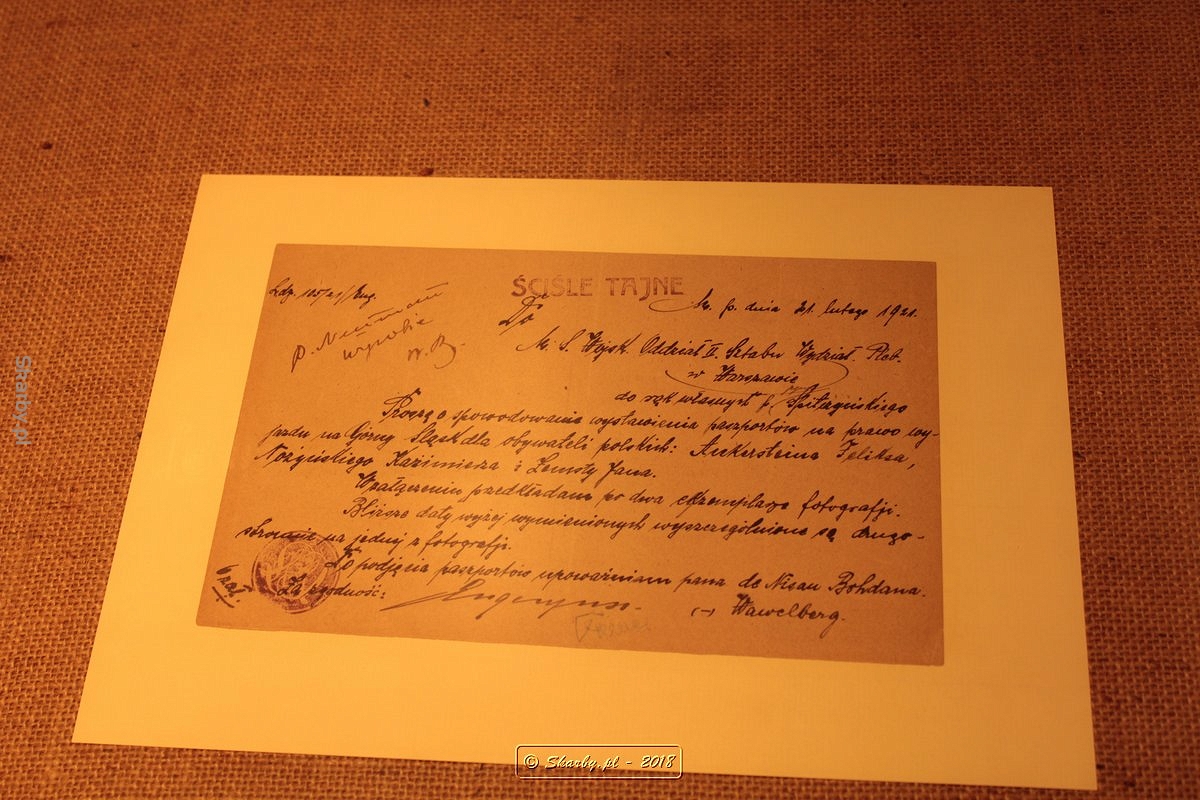 ŚCIŚLE TAJNE
Ldz. 105/21/Eug.
M. p. dnia 21. lutego 1921.
P. Neuman
W. B.
Do
M. S. Wojsk. Oddział II. Sztabu Wydział Pleb.
w Warszawie
do rąk własnych p.
Proszę o spowodowanie wystawienia paszportów na prawo wy-
jazdu na Górny Śląsk dla obywateli polskich: Ankersteina Feliksa,
Nożyńskiego Kazimierza i Zemsty Jana.
W załączeniu przedkładam po dwa egzemplarze fotografji.
Bliższe daty wyżej wymienionych wyszczególnione są drugo-
stronnie na jednej z fotografji.
Do podjęcia paszportów upoważniam pana de Nisau Bohdana.
2 zał.
Za zgodność:
(-) Wawelberg.
Skarby.pl
© Skarby.pl - 2018